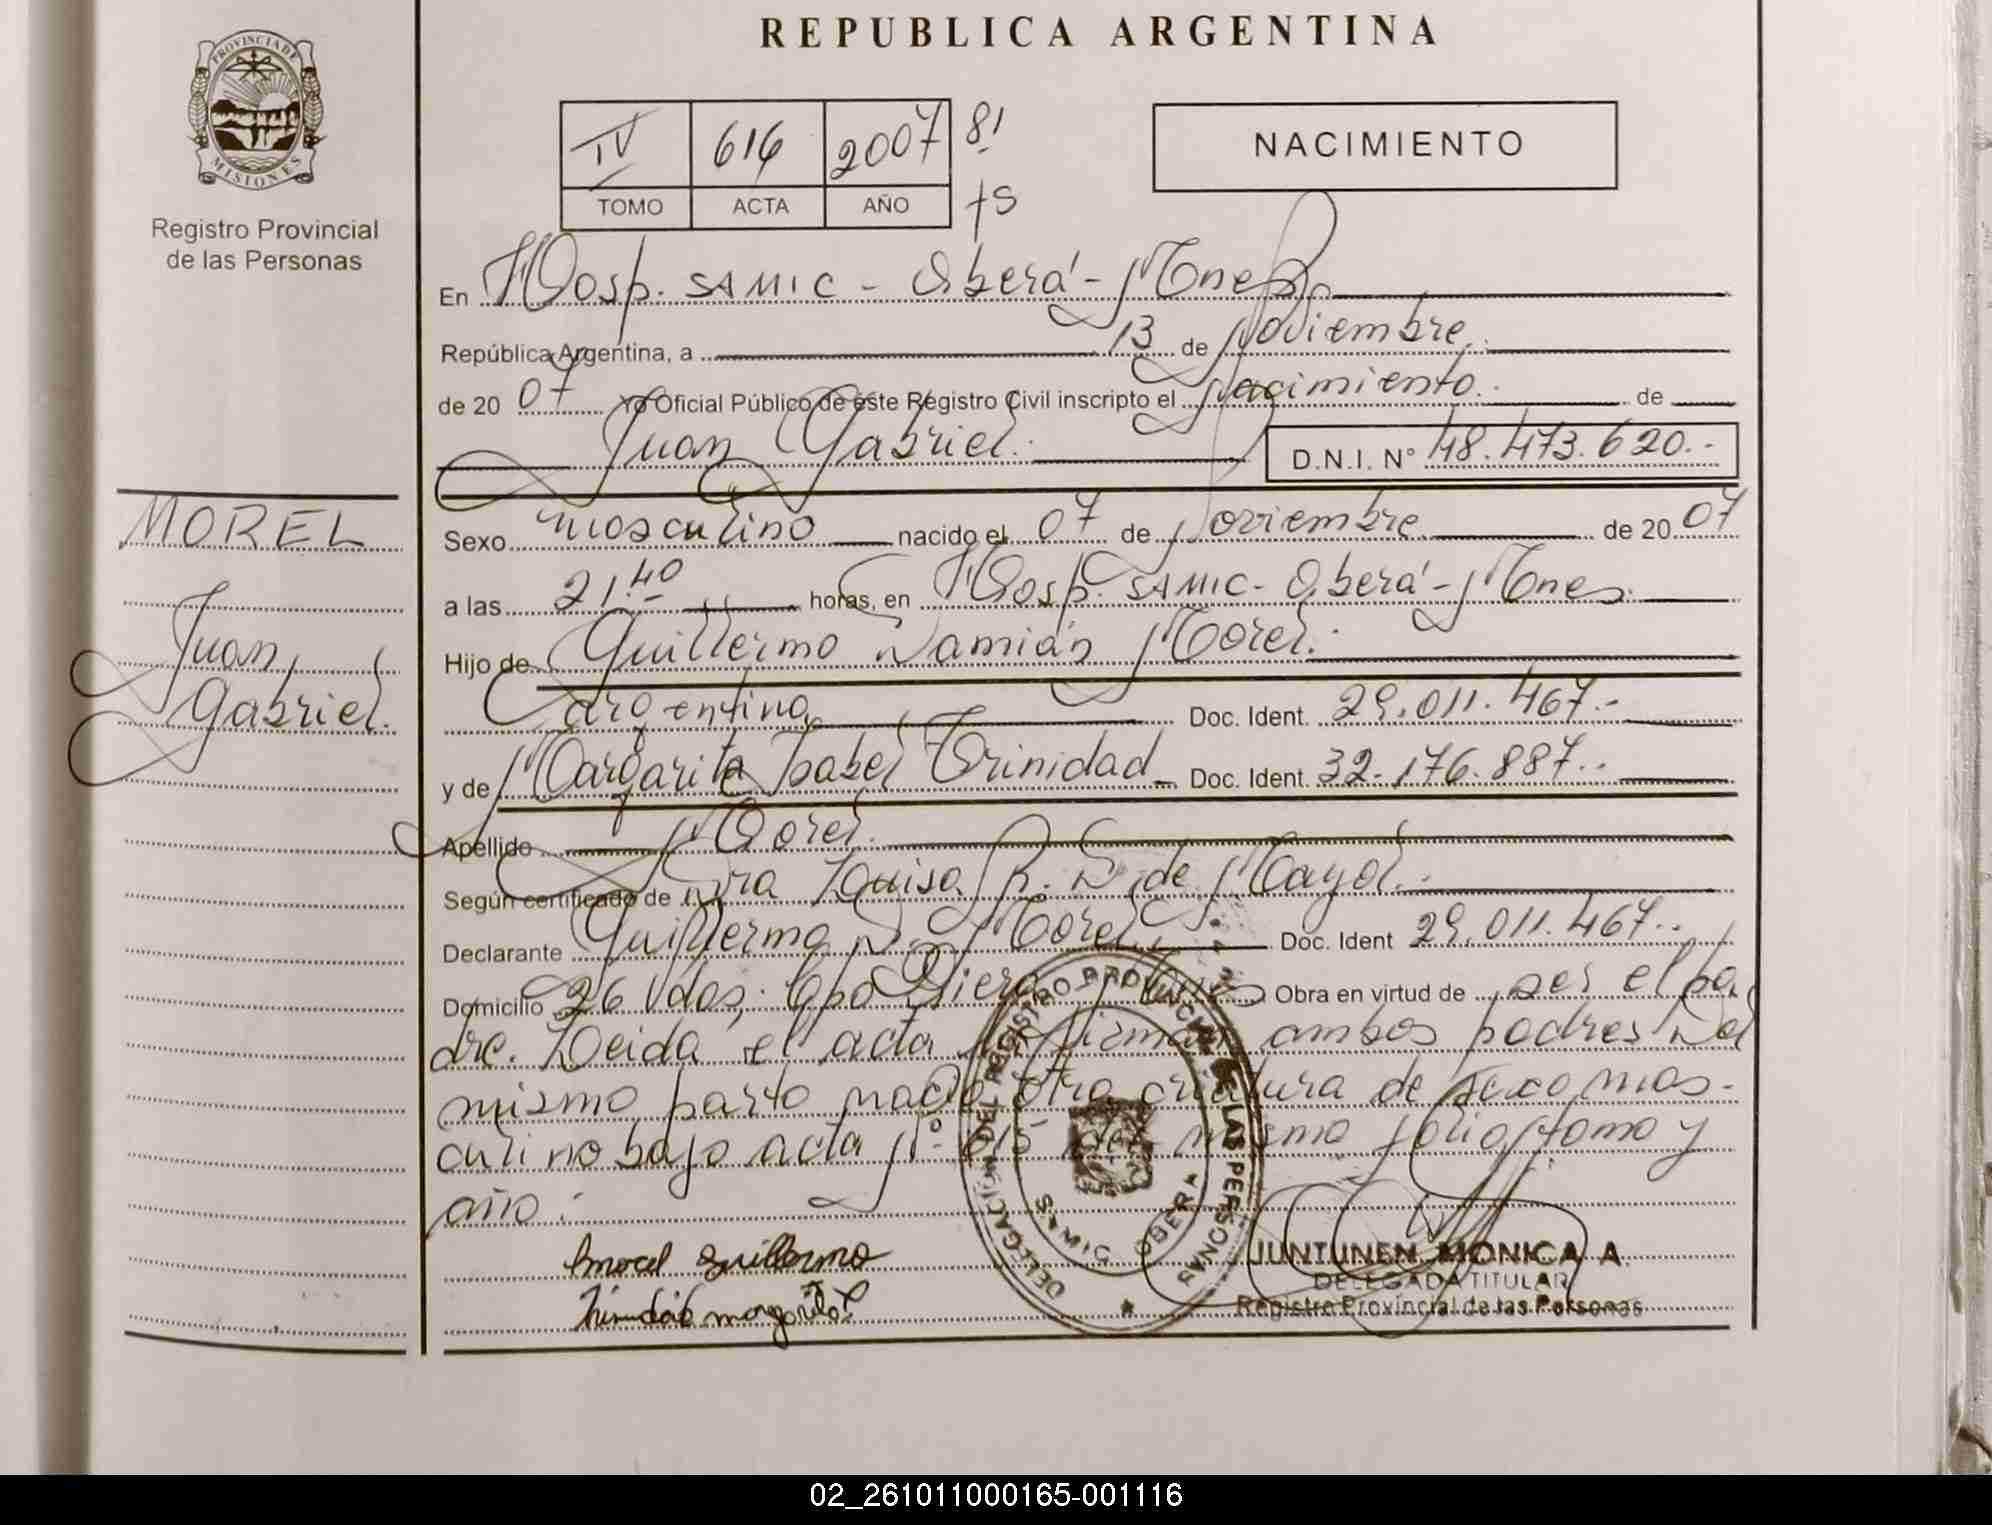 REPUBLICA ARGENTINA
PROVINCIA DE
MISIONES
Registro Provincial
de las Personas
IV 616 2007 81
TOMO ACTA AÑO fs
NACIMIENTO
En Hosp. SAMIC - Oberá - Mnes
República Argentina, a 13 de Noviembre
de 20 07 Yo Oficial Público de este Registro Civil inscripto el Nacimiento. de
Juan Gabriel. D.N.I. N° 48.473.620.-
MOREL
Juan
Gabriel.
Sexo masculino nacido el 07 de Noviembre de 20 07
a las 21.40 horas, en Hosp. SAMIC - Oberá - Mnes.
Hijo de Guillermo Damián Morel.
argentino Doc. Ident. 29.011.467.-
y de Margarita Isabel Trinidad Doc. Ident. 32.176.887.-
Apellido Morel.
Según certificado de Dra Luisa R. D. de Mayol.
Declarante Guillermo D. Morel Doc. Ident 29.011.467.-
Domicilio 26 Vdas, Cpo Viera Mnes Obra en virtud de ser el pa
dre. Leida el acta la firman ambos padres Del
mismo parto nació otra criatura de sexo mas-
culino bajo acta N° 615 del mismo folio, tomo y
año.
Morel Guillermo
Trinidad margarita I
DELEGACION DEL REGISTRO PROVINCIAL DE LAS PERSONAS
SAMIC OBERA
JUNTUNEN MONICA A.
DELEGADA TITULAR
Registro Provincial de las Personas
02_261011000165-001116